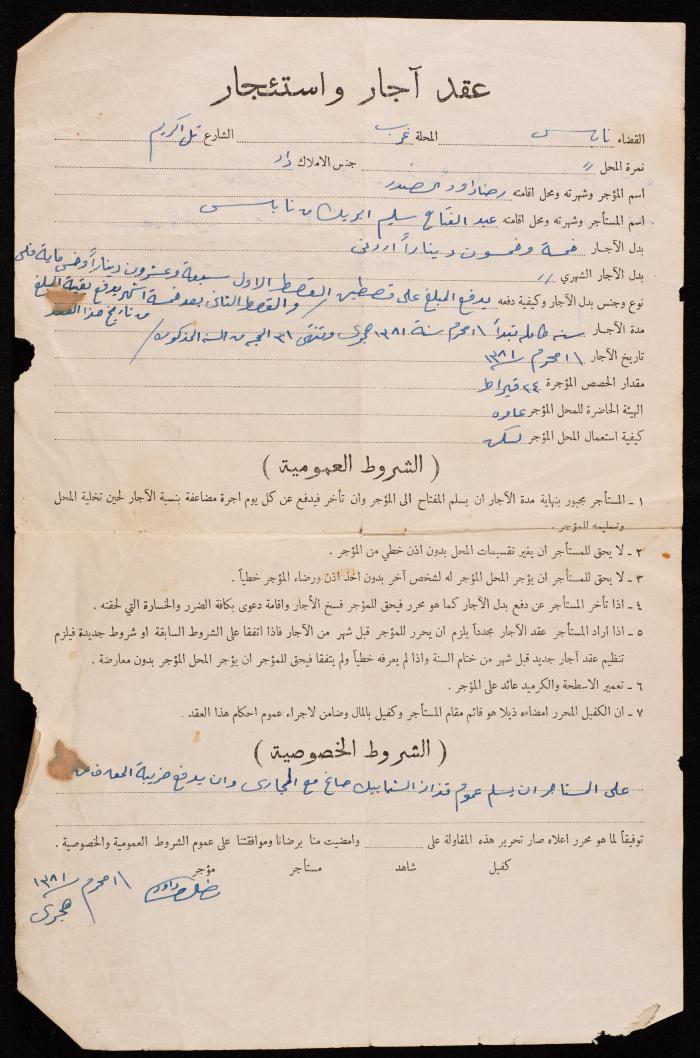 عقد آجار واستئجار
القضاء نابلس المحلة غرب الشارع تل اكريم
نمرة المحل " جنس الاملاك دار
اسم المؤجر وشهرته ومحل اقامته رضا داود
اسم المستأجر وشهرته ومحل اقامته عبد الفتاح سليم ابريك من نابلس
بدل الآجار خمسة وخمسون ديناراً اردني
بدل الآجار الشهري "
نوع وجنس بدل الآجار وكيفية دفعه يدفع المبلغ على قصطين القصط الاول سبعة وعشرون ديناراً وخمسماية فلس
والقصط الثاني بعد خمسة اشهر يدفع بقية المبلغ
من تاريخ هذا العقد
مدة الآجار سنه كامله تبدأ ١ محرم سنة ١٣٨١ هجري وتنتهي ٣١ الحجه من السنه المذكوره
تاريخ الآجار ١ محرم ١٣٨١
مقدار الحصص المؤجرة ٢٤ قيراط
الهيئة الحاضرة للمحل المؤجر عامره
كيفية استعمال المحل المؤجر لسكن
( الشروط العمومية )
١ ـ المستأجر مجبور بنهاية مدة الآجار ان يسلم المفتاح الى المؤجر وان تأخر فيدفع عن كل يوم اجرة مضاعفة بنسبة الآجار لحين تخلية المحل
وتسليمه للمؤجر .
٢ ـ لا يحق للمستأجر ان يغير تقسيمات المحل بدون اذن خطي من المؤجر .
٣ ـ لا يحق للمستأجر ان يؤجر المحل المؤجر له لشخص آخر بدون اخذ اذن ورضاء المؤجر خطياً .
٤ ـ اذا تأخر المستأجر عن دفع بدل الآجار كما هو محرر فيحق للمؤجر فسخ الآجار واقامة دعوى بكافة الضرر والخسارة التي لحقته .
٥ ـ اذا اراد المستأجر عقد الآجار مجدداً يلزم ان يحرر للمؤجر قبل شهر من الآجار فاذا اتفقا على الشروط السابقة او شروط جديدة فيلزم
تنظيم عقد آجار جديد قبل شهر من ختام السنة واذا لم يعرفه خطياً ولم يتفقا فيحق للمؤجر ان يؤجر المحل المؤجر بدون معارضة .
٦ ـ تعمير الاسطحة والكرميد عائد على المؤجر .
٧ ـ ان الكفيل المحرر امضاءه ذيلا هو قائم مقام المستأجر وكفيل بالمال وضامن لاجراء عموم احكام هذا العقد .
( الشروط الخصوصية )
على المستاجر ان يسلم عموم قزاز الشبابيك صاغ مع المجاري وان يدفع ضريبة المعارف
توفيقاً لما هو محرر اعلاه صار تحرير هذه المقاولة على وامضيت منا برضانا وموافقتنا على عموم الشروط العمومية والخصوصية .
كفيل شاهد مستأجر مؤجر
١ محرم ١٣٨١
هجري